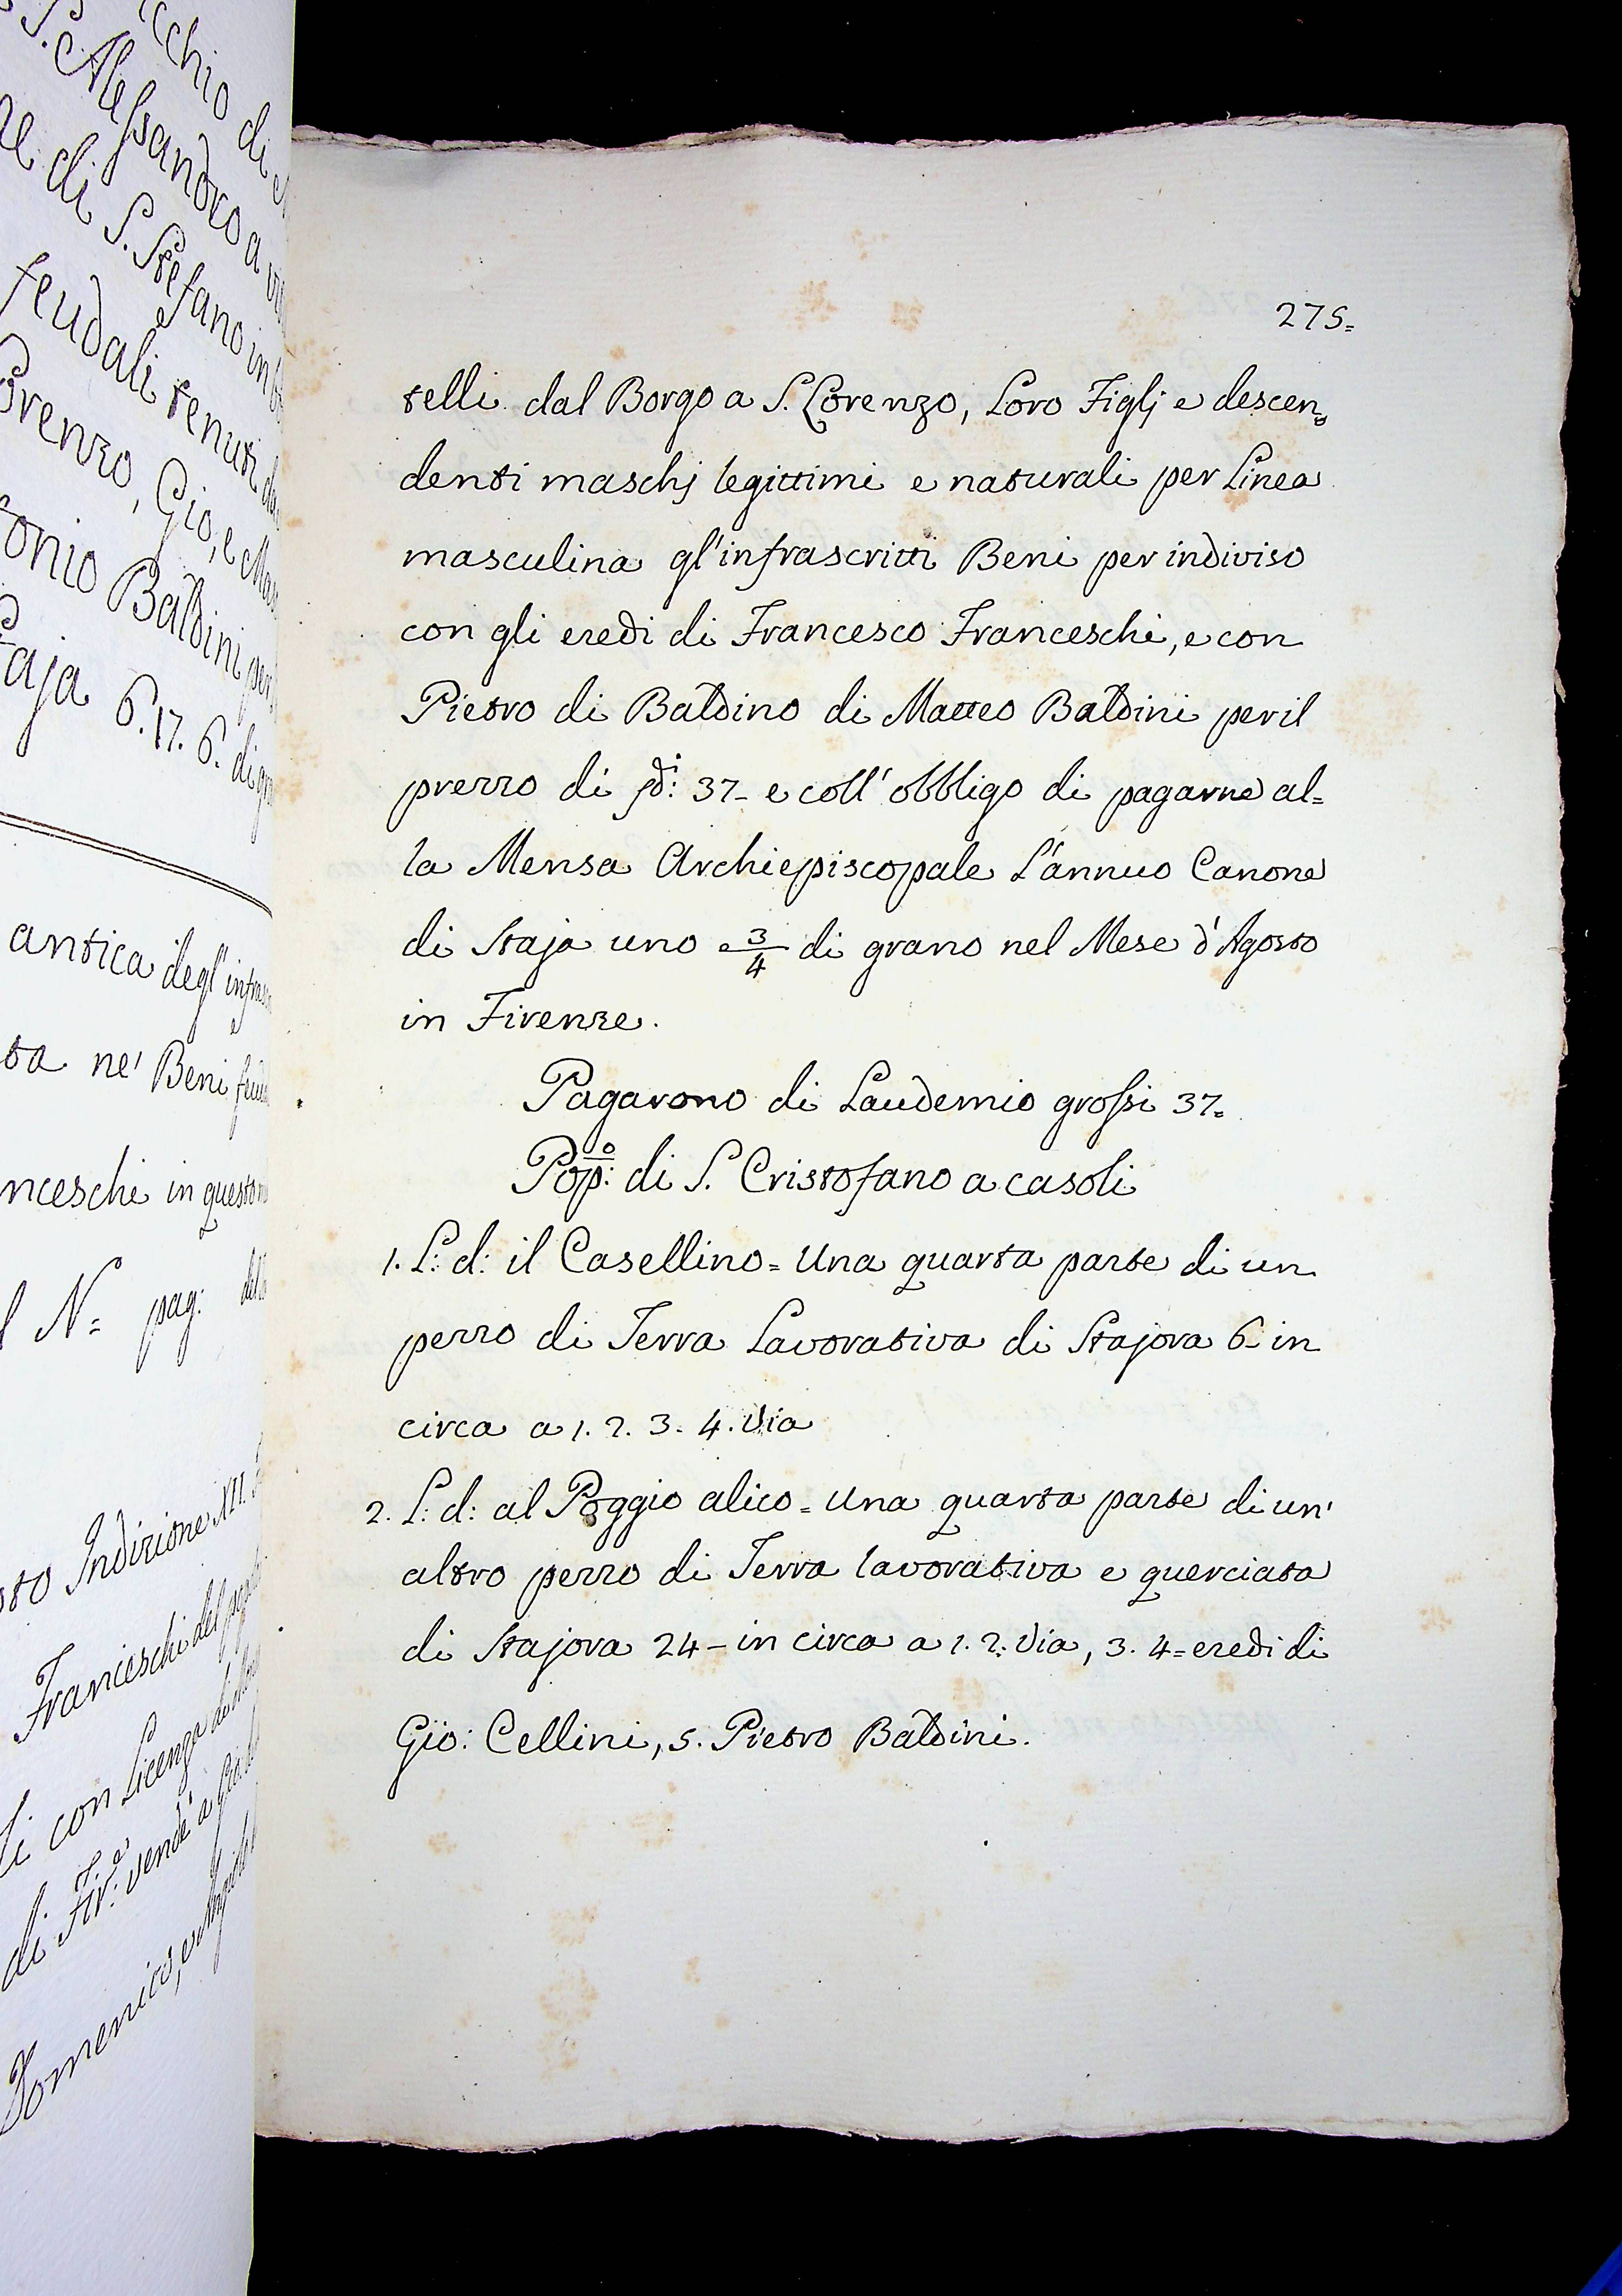 cchio di
S. Alessandro a
di S. Stefano in
feudali tenuti da
Lorenzo, Gio, e
tonio Baldini per
Staja 6. 17. 6. di
antica degl'infras
ta ne' Beni
nceschi in questo
N= pag:
Indizione XII.
Franceschi del
con Licenza di
di Fir:e vendé a
Domenico, e
275=
telli dal Borgo a S. Lorenzo, Loro Figlj e descen=
denti maschj legittimi e naturali per Linea
masculina gl'infrascritti Beni per indiviso
con gli eredi di Francesco Franceschi, e con
Pietro di Baldino di Matteo Baldini per il
prezzo di ſdi: 37- e coll' obbligo di pagarne al=
la Mensa Archiepiscopale L'annuo Canone
di Staja uno e 3/4 di grano nel Mese d'Agosto
in Firenze.
Pagarono di Laudemio grossi 37=
Pop:o di S. Cristofano a casoli
1. L: d: il Casellino = Una quarta parte di un
pezzo di Terra Lavorativa di Stajora 6- in
circa a 1. 2. 3. 4. Via
2. L: d: al Poggio alico = Una quarta parte di un'
altro pezzo di Terra lavorativa e querciata
di Stajora 24 - in circa a 1. 2: Via, 3. 4 = eredi di
Gio: Cellini, 5. Pietro Baldini.